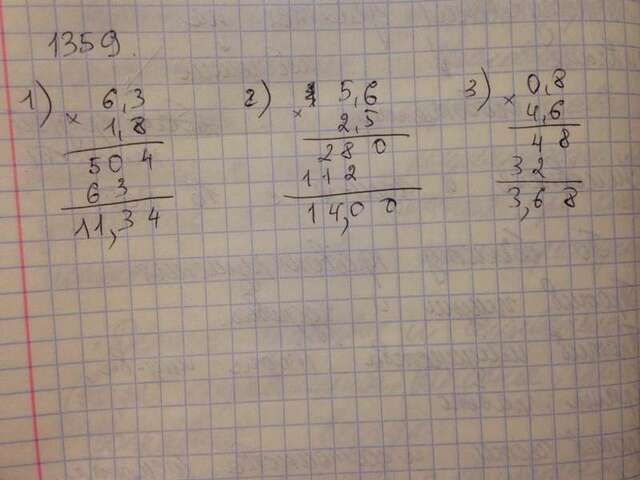 1359.
1) 6,3
× 1,8
504
63
11,34
2) 5,6
× 2,5
280
112
14,00
3) 0,8
× 4,6
48
32
3,68